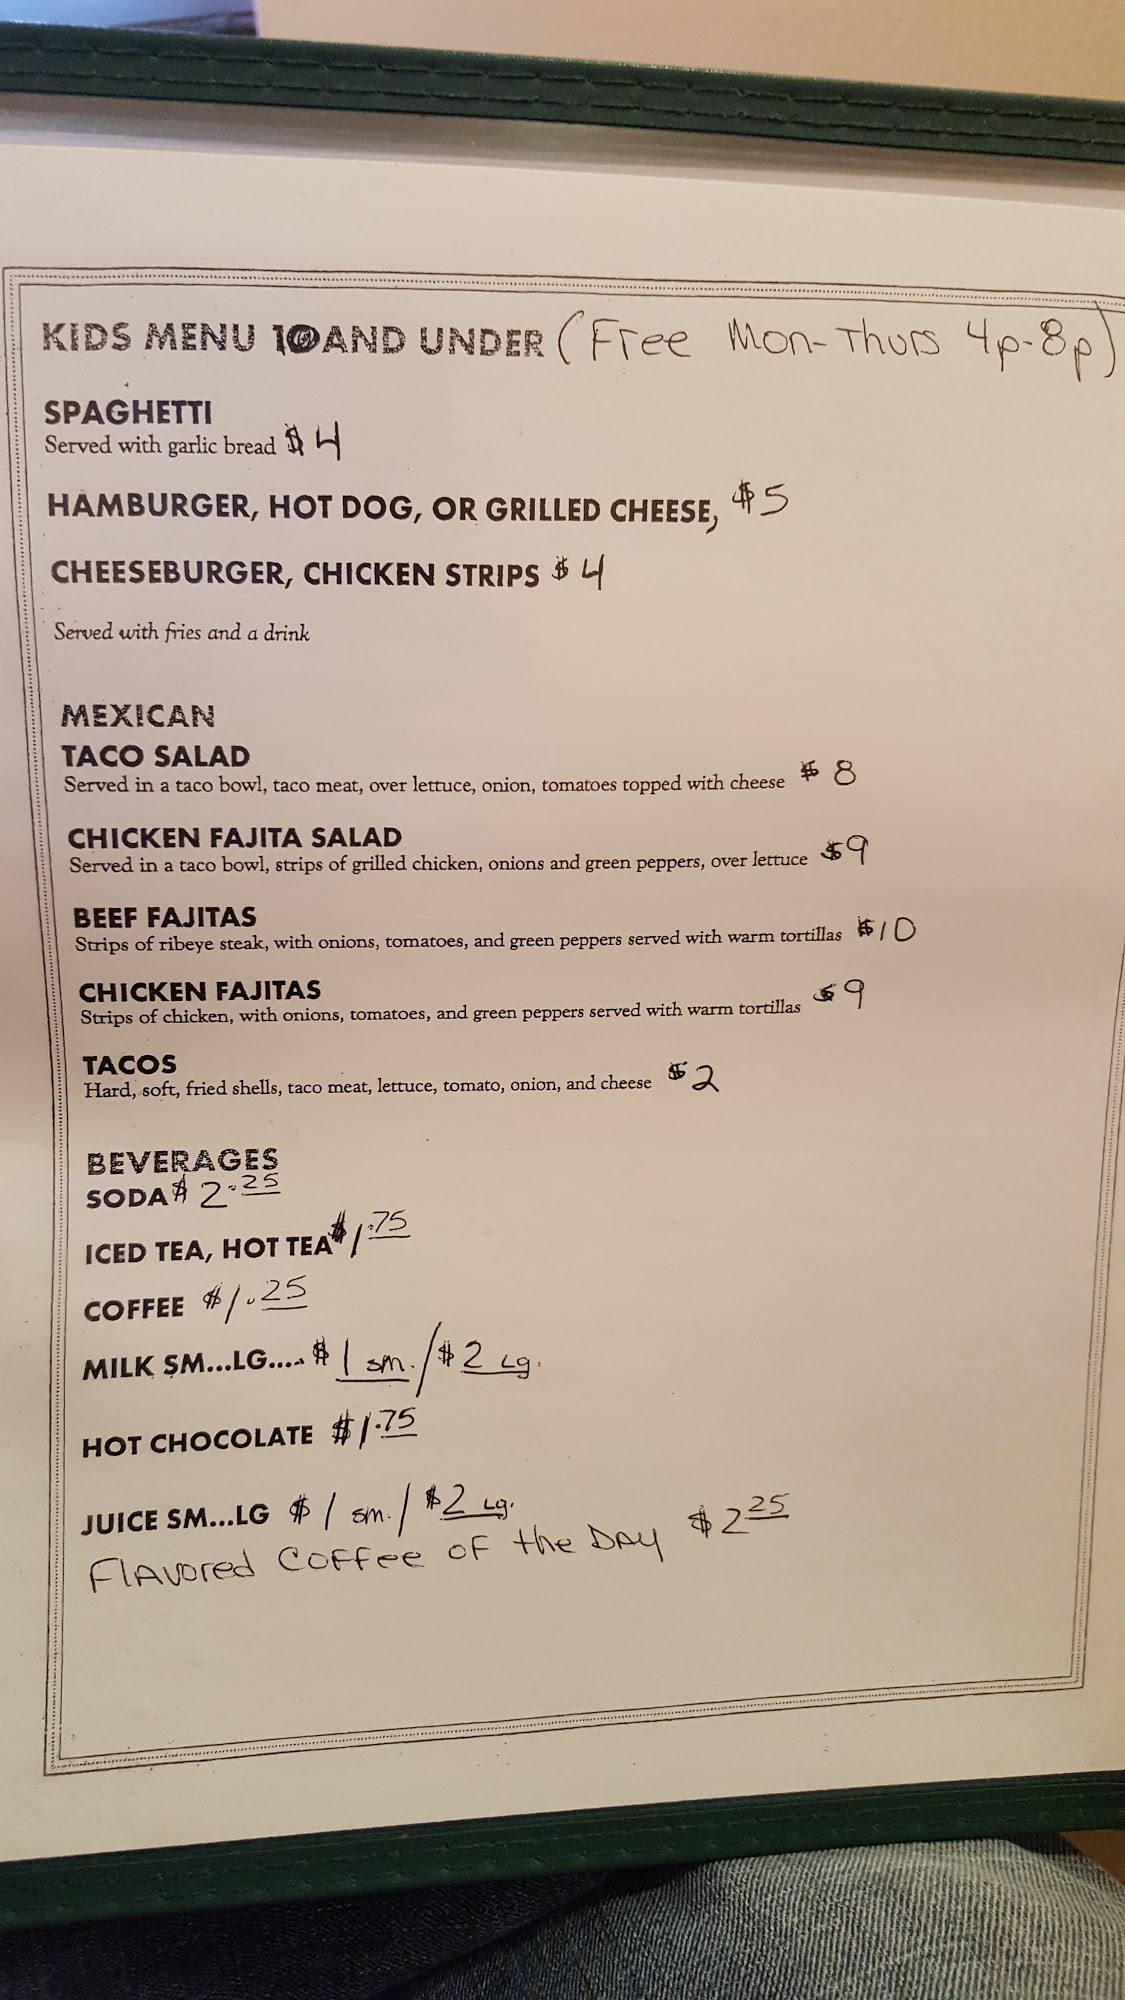 KIDS MENU 10 AND UNDER (Free Mon-Thurs 4p-8p)
SPAGHETTI
Served with garlic bread $4
HAMBURGER, HOT DOG, OR GRILLED CHEESE, $5
CHEESEBURGER, CHICKEN STRIPS $4
Served with fries and a drink
MEXICAN
TACO SALAD
Served in a taco bowl, taco meat, over lettuce, onion, tomatoes topped with cheese $8
CHICKEN FAJITA SALAD
Served in a taco bowl, strips of grilled chicken, onions and green peppers, over lettuce $9
BEEF FAJITAS
Strips of ribeye steak, with onions, tomatoes, and green peppers served with warm tortillas $10
CHICKEN FAJITAS
Strips of chicken, with onions, tomatoes, and green peppers served with warm tortillas $9
TACOS
Hard, soft, fried shells, taco meat, lettuce, tomato, onion, and cheese $2
BEVERAGES
SODA $2.25
ICED TEA, HOT TEA $1.75
COFFEE $1.25
MILK SM...LG.... $1 sm./$2 Lg.
HOT CHOCOLATE $1.75
JUICE SM...LG $1 sm./$2 Lg.
Flavored Coffee of the Day $2.25